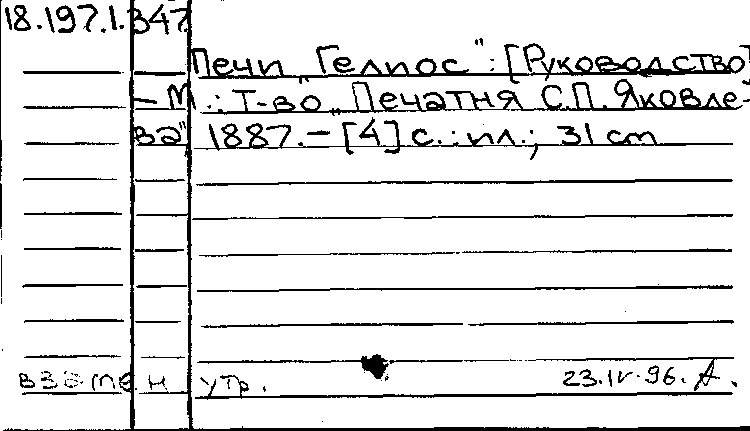 18.197.1.347
Печи „Гелиос“: [Руководство]
– М.: Т-во „Печатня С.П. Яковле-
ва“ 1887. – [4] с.: ил.; 31 cm
взамен утр. 23.IV.96. А.